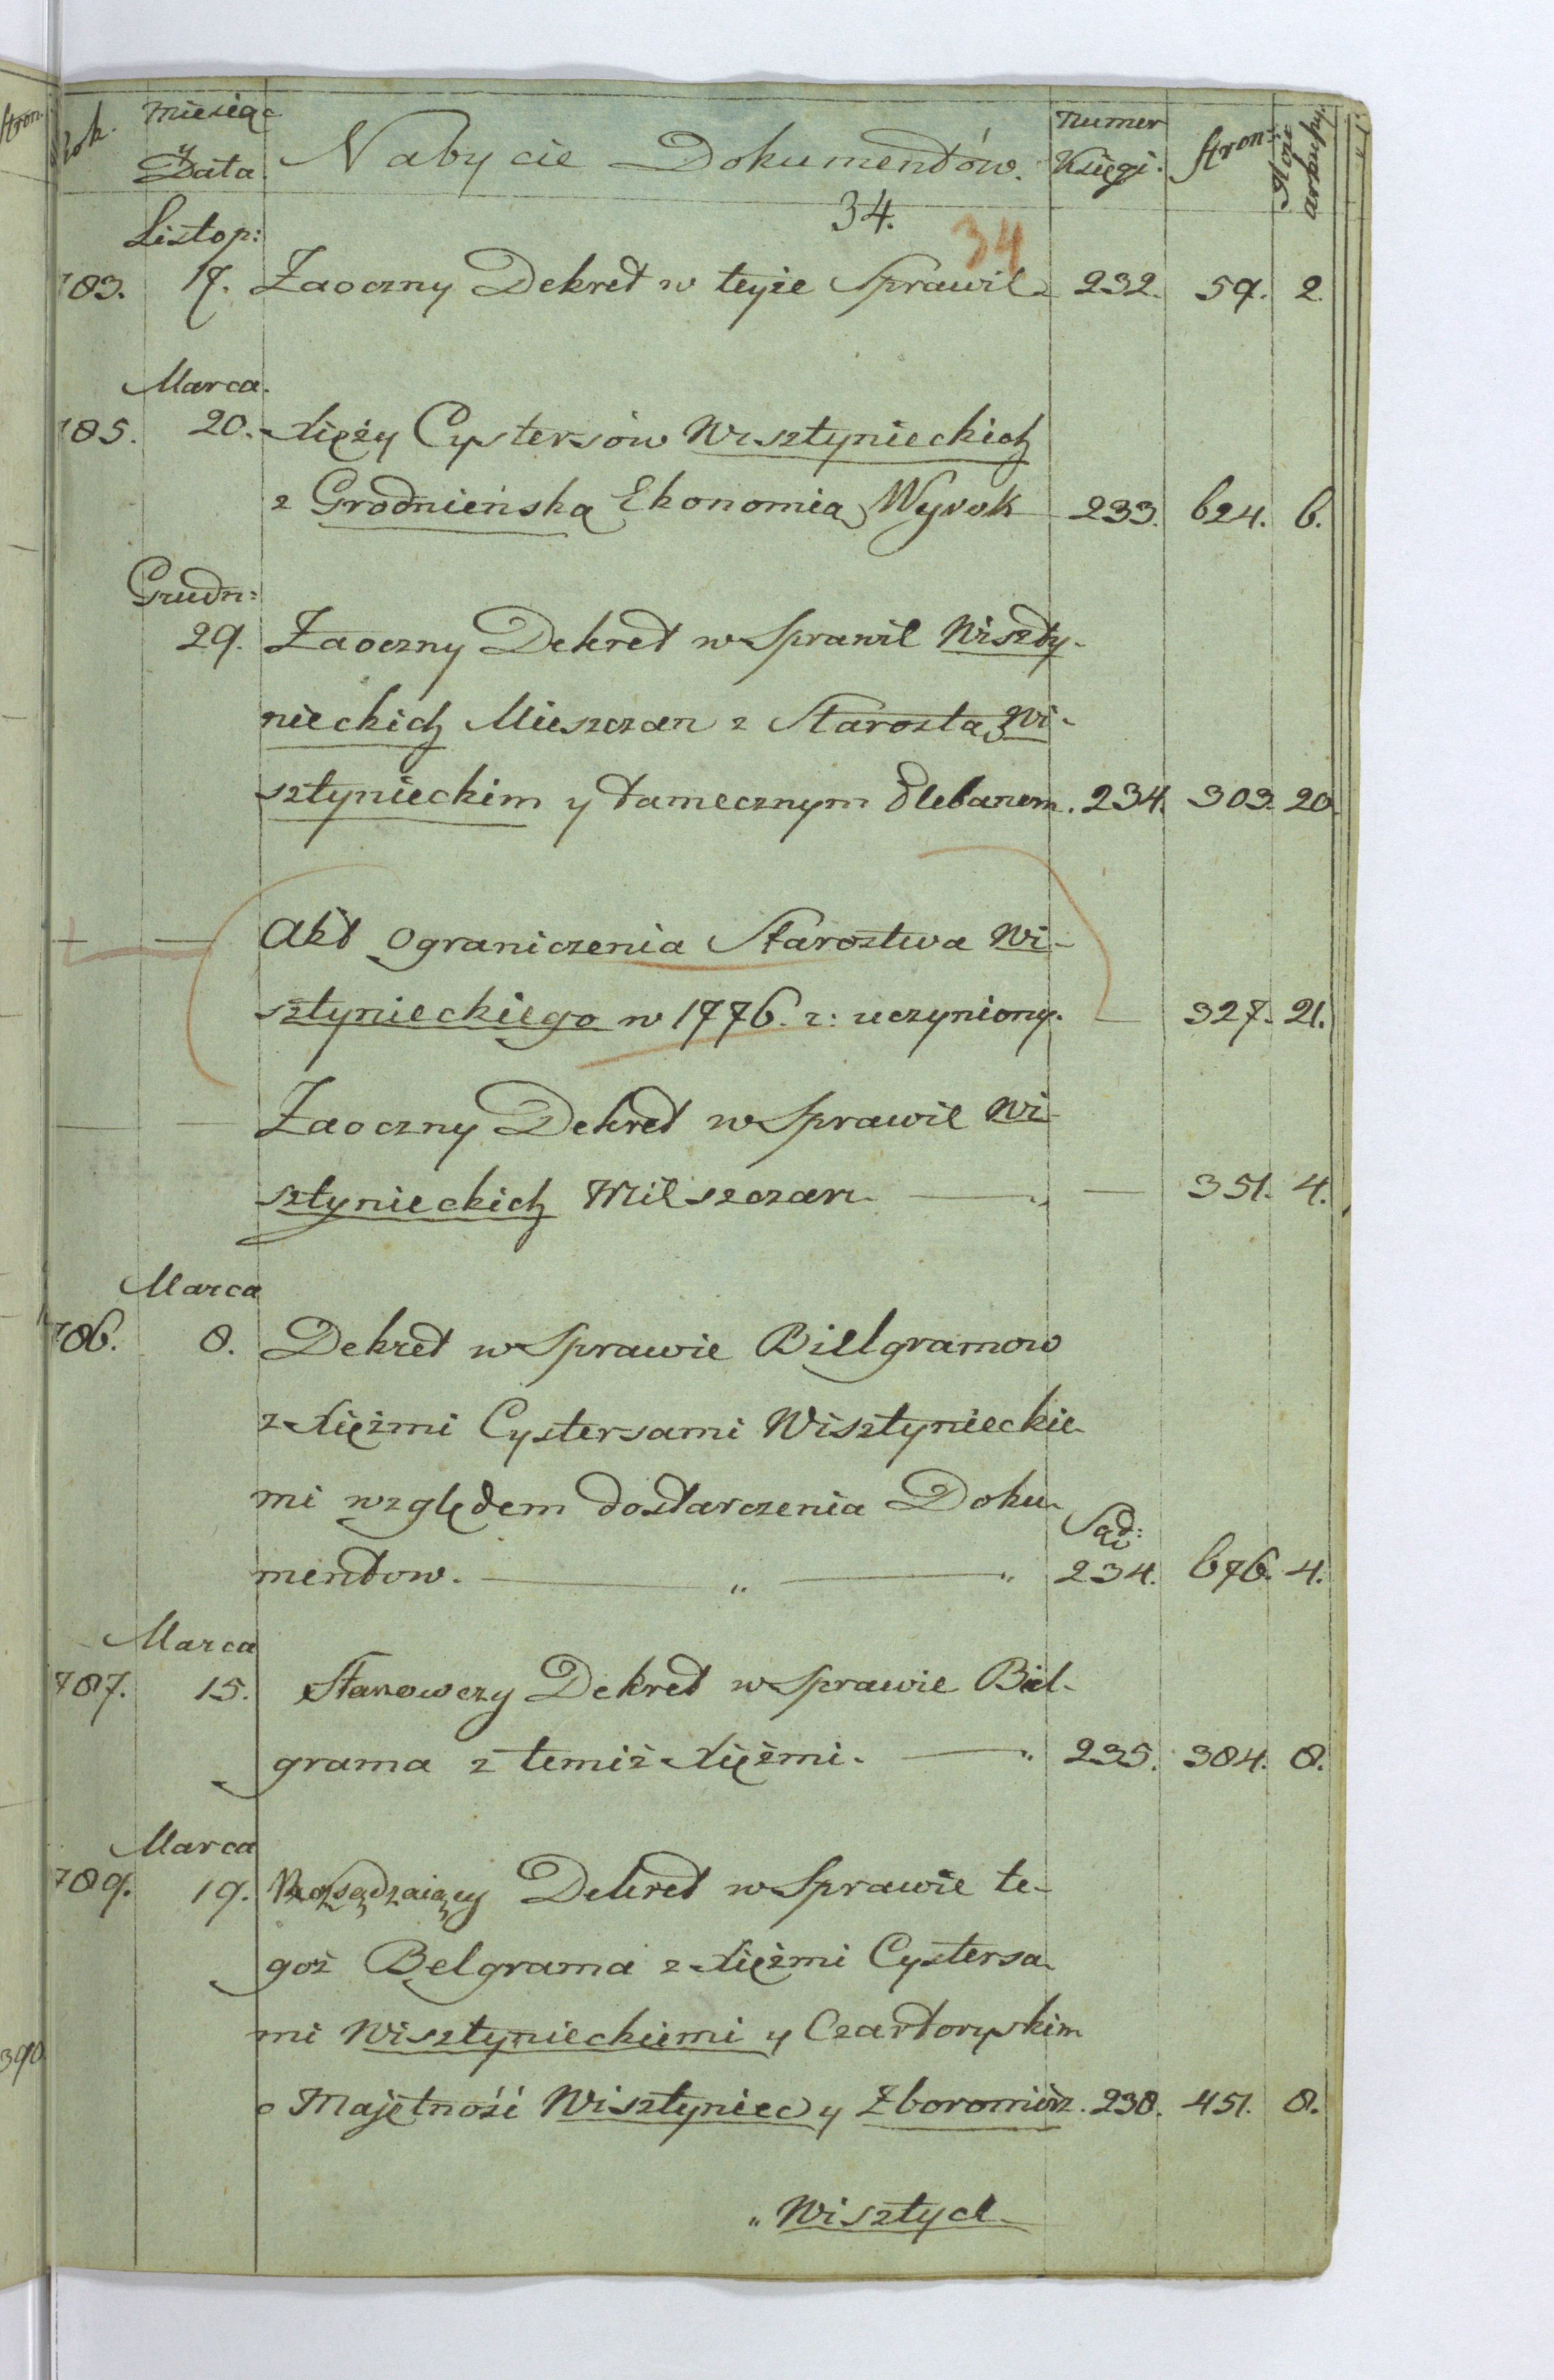 stron.
Rok. Miesiąc
y
Data. Nabycie Dokumentów. Numer
Księgi. Stron: Ilość
arkuszy.
34. 34
Listop:
783. 17. Zaoczny Dekret w teyże Sprawie 232. 59. 2.
Marca.
785. 20. Xięży Cystersów Wisztynieckich
z Grodnieńską Ekonomią Wyrok 233. 624. 6.
Grudn:
29. Zaoczny Dekret w Sprawie Wiszty-
nieckich Mieszczan z Starostą Wi-
sztynieckim y tamecznym Plebanem. 234. 303. 20.
Akt Ograniczenia Starostwa Wi-
sztynieckiego w 1776. r: uczyniony. — 327. 21.
Zaoczny Dekret w Sprawie Wi-
sztynieckich Mieszczan. — „ — 351. 4.
Marca
786. 8. Dekret w Sprawie Billgramow
z Xiężmi Cystersami Wisztynieckie-
mi względem dostarczenia Doku-
mentow. — „ — „ Sąd:
234. 676. 4.
Marca
787. 15. Stanowczy Dekret w Sprawie Bil-
grama z temiż Xiężmi. — „ 235. 384. 8.
Marca
789. 19. Rozsądzaiący Dekret w Sprawie te-
goż Belgrama z Xiężmi Cystersa-
mi Wisztynieckiemi y Czartoryskim
o Majętność Wisztyniec y Zboromirz. 238. 451. 8.
390.
„ Wisztycl-